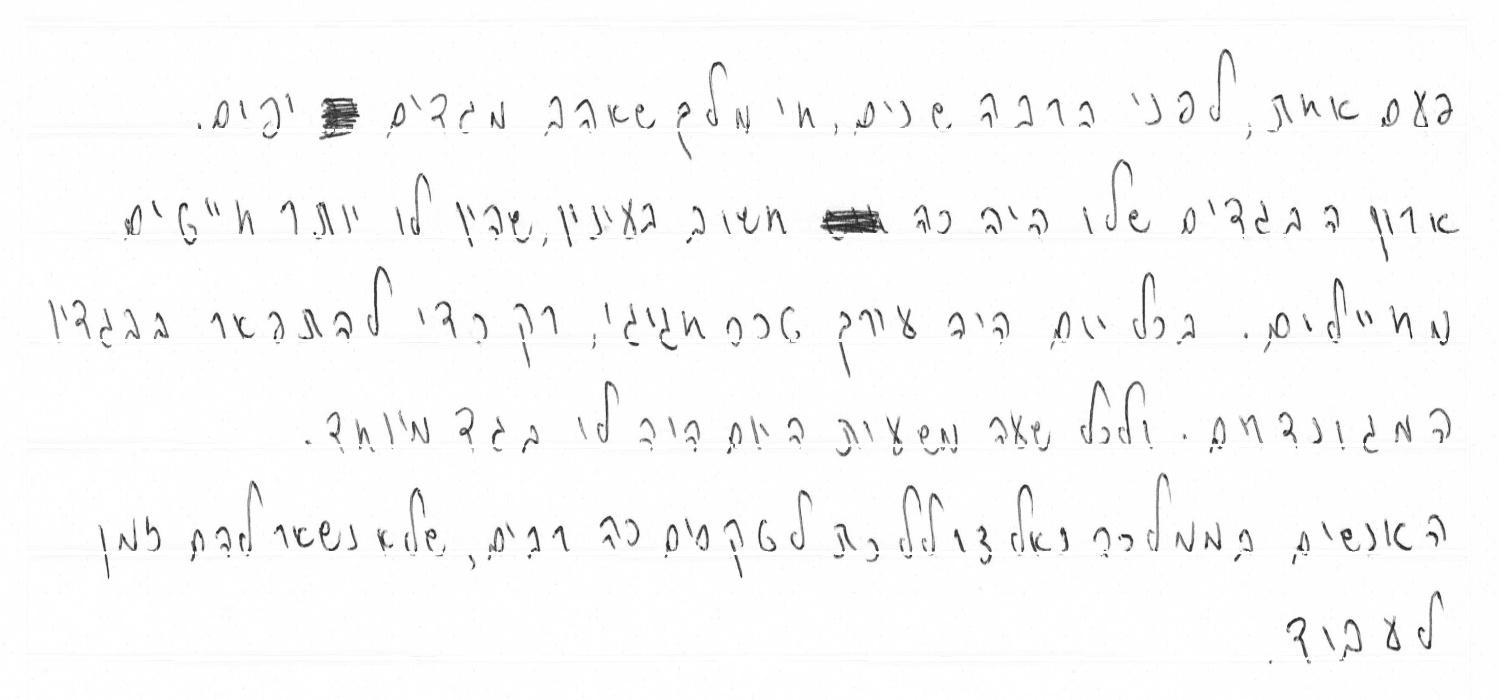 פעם אחת, לפני הרבה שנים, חי מלך שאהב מגדים יפים.
ארון הבגדים שלו היה כה חשוב בעיניו, שהיו לו יותר חייטים
מחיילים. בכל יום היה עורך טכס חגיגי, רק כדי להתפאר בבגדיו
המגונדרים. ולכל שעה משעות היום היה לו בגד מיוחד.
האנשים בממלכה נאלצו ללכת לטקסים כה רבים, שלא נשאר להם זמן
לעבוד.